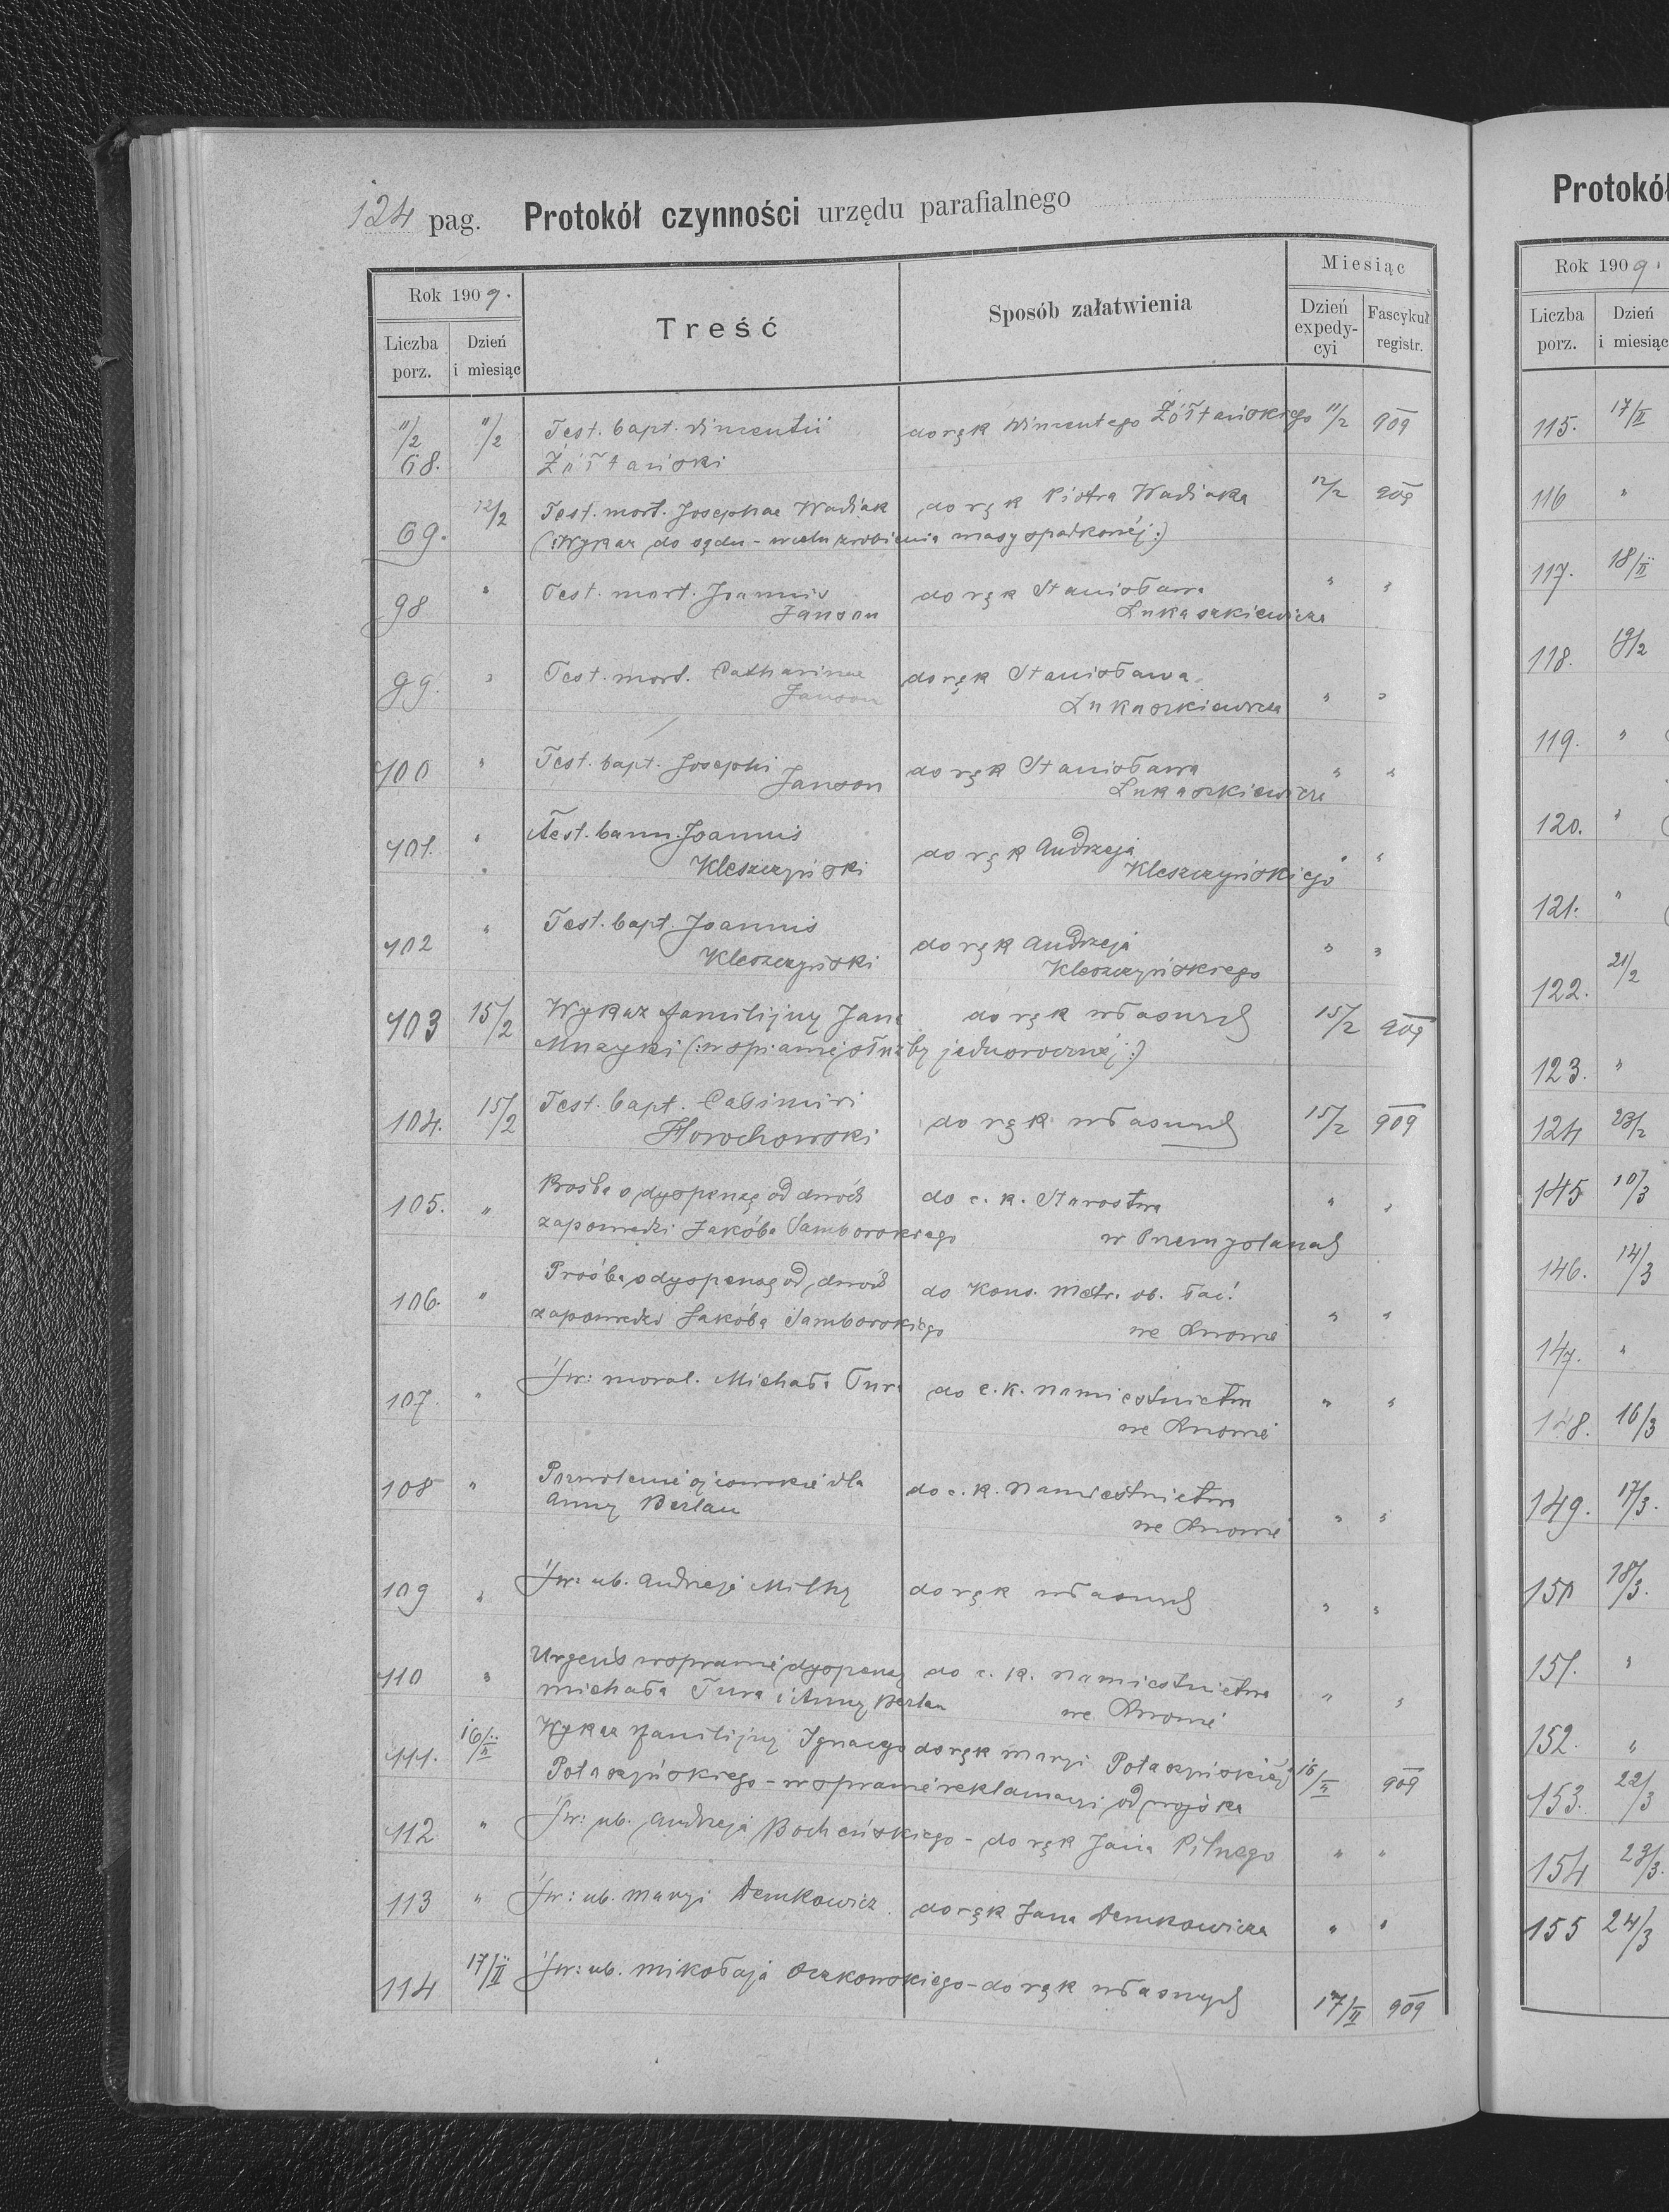 124 pag. Protokół czynności urzędu parafialnego
Rok 1909.
Liczba porz.
Dzień i miesiąc
Treść
Sposób załatwienia
Miesiąc
Dzień expedycyi
Fascykuł registr.
11/2 68. 11/2 Test. bapt. Vincentii do rąk Wincentego Żółtańskiego 11/2 909
Żółtański
69. 12/2 Test. mort. Josephae Wadiak do rąk Piotra Wadiaka 12/2 909
(:Wykaz do sądu - masy spadkowej:)
98 " Test. mort. Joannis do rąk Stanisława " "
Janson Łukaszkiewicza
99. " Test. mort. Catharinae do rąk Stanisława
Janson Łukaszkiewicza " "
100 " Test. bapt. Josephi do rąk Stanisława " "
Janson Łukaszkiewicza
101. " Test. bann. Joannis do rąk Andrzeja " "
" Kleszczyński Kleszczyńskiego
102 " Test. bapt. Joannis do rąk Andrzeja " "
Kleszczyński Kleszczyńskiego
103 15/2 Wykaz familijny Jana do rąk własnych 15/2 909
Muzyki (:w sprawie służby jednorocznej:)
104. 15/2 Test. bapt. Casimiri do rąk własnych 15/2 909
Horochowski
105. " Prośba o dyspenzę od dwóch do c. k. Starostwa " "
zapowiedzi Jakóba Samborskiego w Przemyślanach
106. " Prośba o dyspenzę od dwóch do Kons. Metr. ob. łać.
zapowiedzi Jakóba Samborskiego we Lwowie " "
107. " Św: moral. Michała Tura do c. k. Namiestnictwa " "
we Lwowie
108 " Pozwolenie ojcowskie dla do c. k. Namiestnictwa
Anny Berlan we Lwowie " "
109 " Św: ub. Andrzeja Milky do rąk własnych " "
110 " Urgens w sprawie dyspenzy do c. k. Namiestnictwa
Michała Tura i Anny Berlan we Lwowie " "
111. 16/II Wykaz familijny Ignacego do rąk Maryi Potaszyńskiej 16/II 909
Potaszyńskiego - w sprawie reklamacyi od wojska
112 " Św: ub. Andrzeja Bocheńskiego - do rąk Jana Pilnego " "
113 " Św: ub. Maryi Demkowicz. do rąk Jana Demkowicza " "
114 17/II Św: ub. Mikołaja Oczkowskiego - do rąk własnych 17/II 909
Protokół
Rok 1909.
Liczba porz.
Dzień i miesiąc
115. 17/II
116 "
117. 18/II
118. 19/2
119. "
120. "
121. "
122. 21/2
123. "
124 23/2
145 10/3
146. 14/3
147. "
148. 16/3
149. 17/3.
150 18/3.
151. "
152. "
153. 22/3
154 23/3.
155 24/3